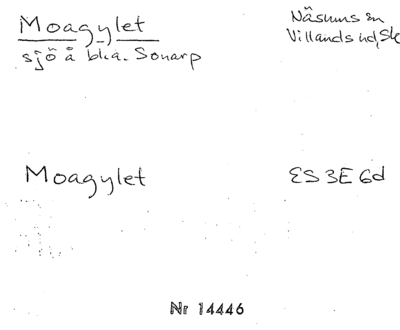 Moagylet
sjö å bl.a. Sonarp
Näsums sn
Villands hd, Sk
Moagylet
ES 3E 6d
Nr 14446